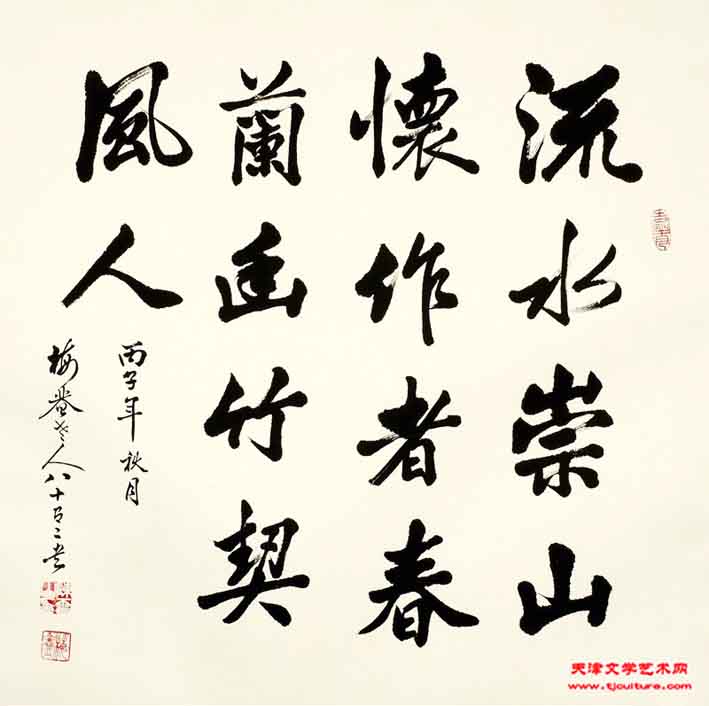 流水崇山
懷作者春
蘭幽竹契
風人
丙子年秋月
梅盦老人八十又二書
天津文学艺术网
www.tjculture.com